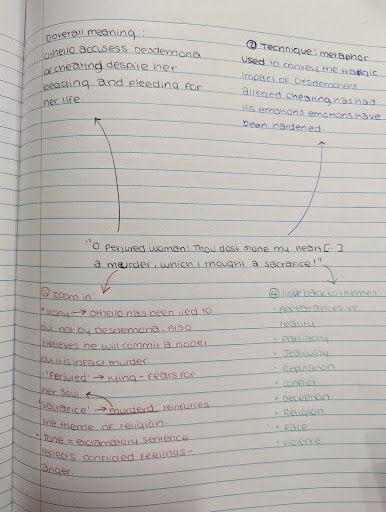 ① overall meaning:
Othello accusess Desdemona
of cheating despite her
begging and pleeding for
her life.
② Technique: metaphor
used to convey the tragic
impact of Desdemona's
alleged cheating has had
His emotions emotions have
been hardened.
"O Perjured woman! Thou dost stone my heart [...]
a murder, which I thought a sacrifice!"
③ zoom in
• Irony → Othello has been lied to
but not by Desdemona. Also
believes he will commit a nobel
but it is infact murder.
• 'Perjured' → lying - fears for
her soul.
'sacrifice' → murderd reinforces
the theme of religion.
• Tone = exclamatory sentence
reflects conflicted feelings -
anger.
④ link back to themes:
• Appearances vs
reality
• Patriarchy
• Jealously
• Reputation
• conflict
• Deception
• Religion
• race
• violence